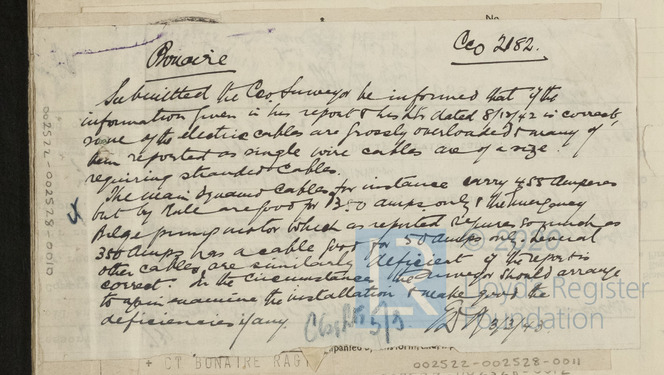 No
Bonaire
Cco 2182.
Submitted the Cco Surveyor be informed that if the
information given in his report & his ltr dated 8/12/42 is correct,
some of the electric cables are grossly overloaded & many of
them reported as single wire cables are of a size
requiring stranded cables.
The main dynamo cables for instance carry 455 Amperes
but by Rule are good for 130 amps only & the emergency
Bilge pump motor which as reported requires so much as
350 Amps has a cable good for 50 amps only. Several
other cables are similarly deficient if the report is
correct. In the circumstances the Surveyor should arrange
to again examine the installation & make good the
deficiencies if any.
3/3/43
© 2020
Lloyd's Register
Foundation
+ CT BONAIRE RAG
002522-002528-0010
002522-002528-0011